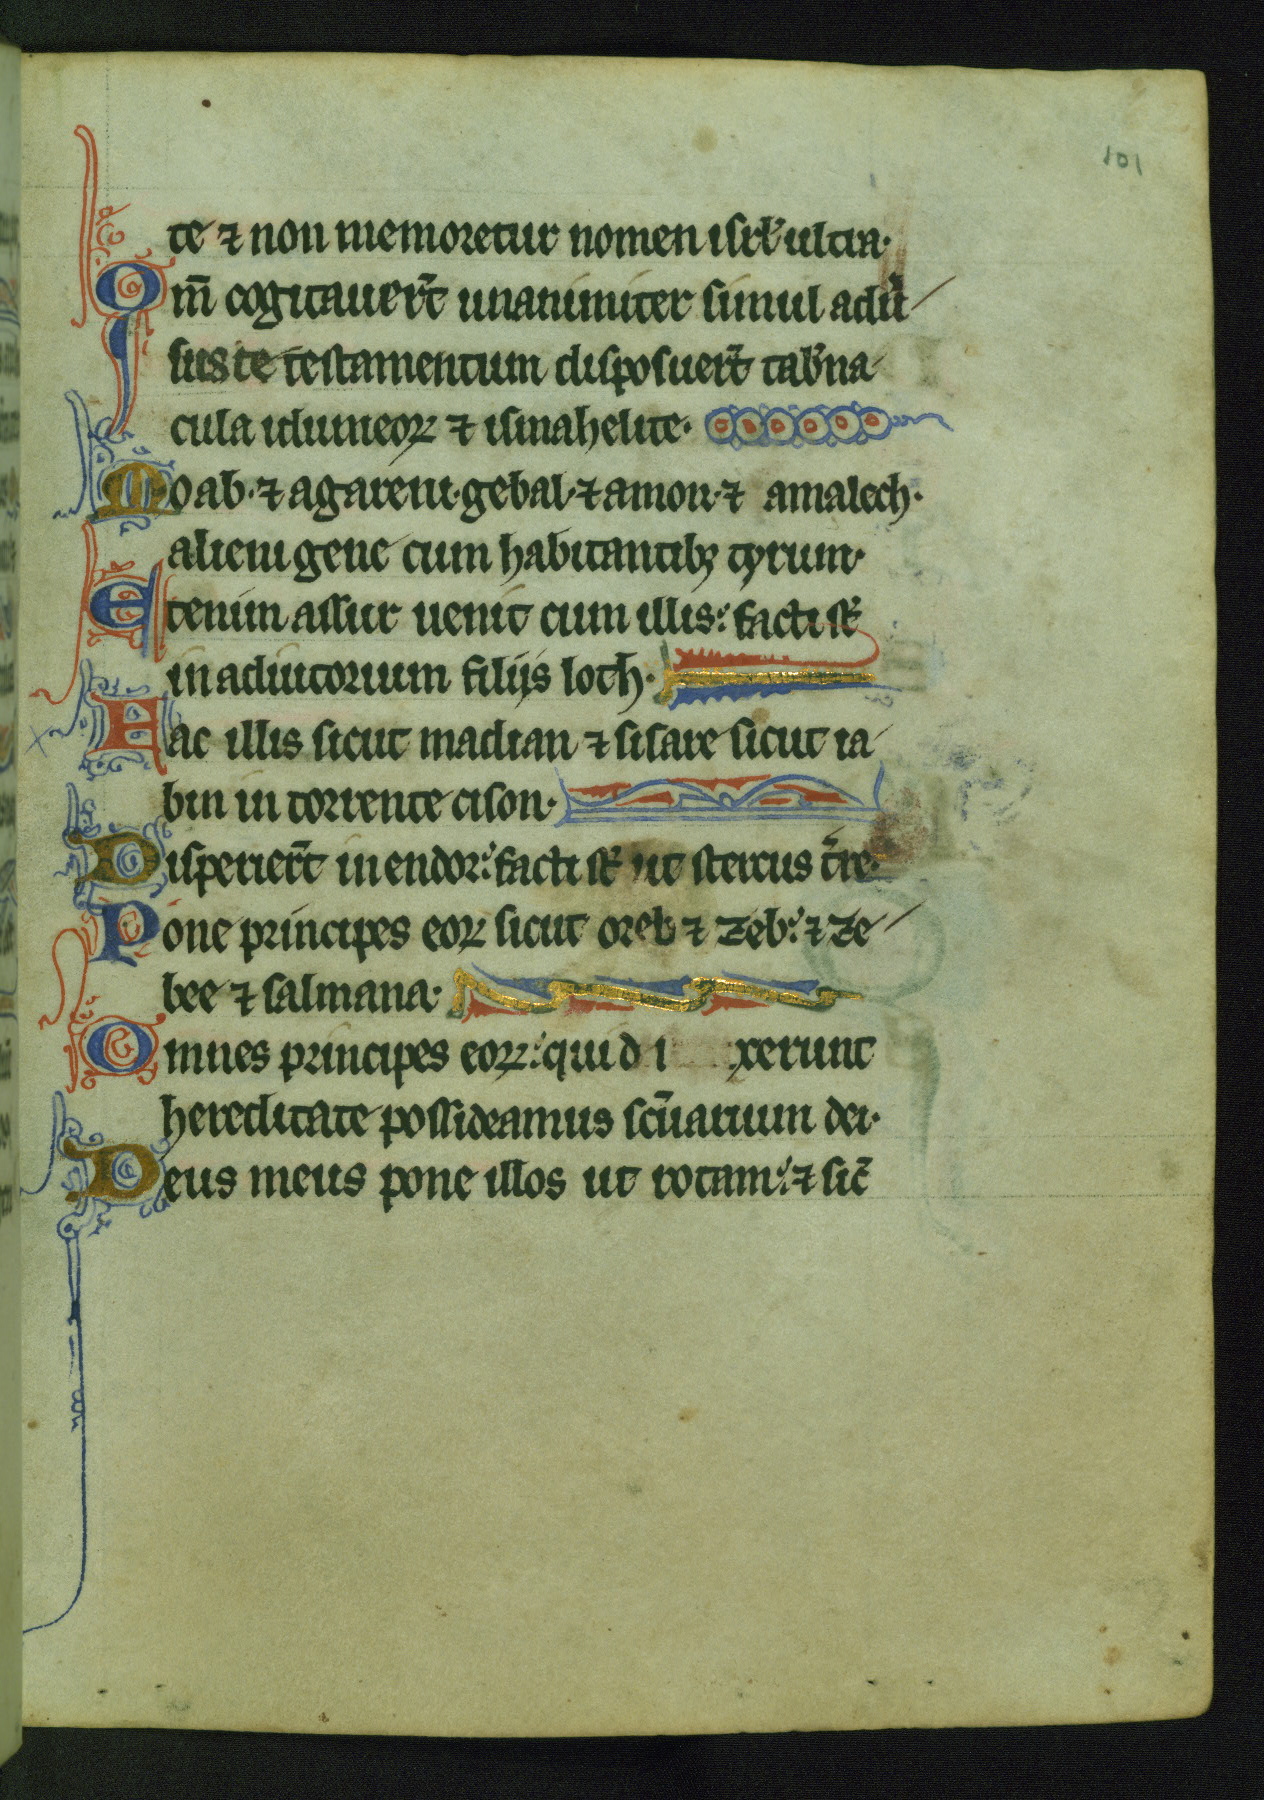 101
te ⁊ non memoretur nomen isrl̄ ultra·
Qm̄ cogitauer̄t unanimiter simul adu̾
sus te testamentum disposuer̄t tab̾na
cula idumeoꝝ ⁊ ismahelite·
Moab·⁊ agareni·gebal·⁊ amon·⁊ amalech·
alienigene cum habitantibꝫ tyrum·
Etenim assur uenit cum illis: facti st̄
in adiutorium filijs loth·
Fac illis sicut madian ⁊ sisare sicut ia
bin in torrente cison·
Disperier̄t in endor: facti st̄ ut stercus t̾re·
Pone principes eoꝝ sicut oreb ⁊ zeb: ⁊ ze
bee ⁊ salmana·
Omnes principes eoꝝ: qui d i xerunt
hereditate possideamus scūarium dei·
Deus meus pone illos ut rotam: ⁊ sic̄